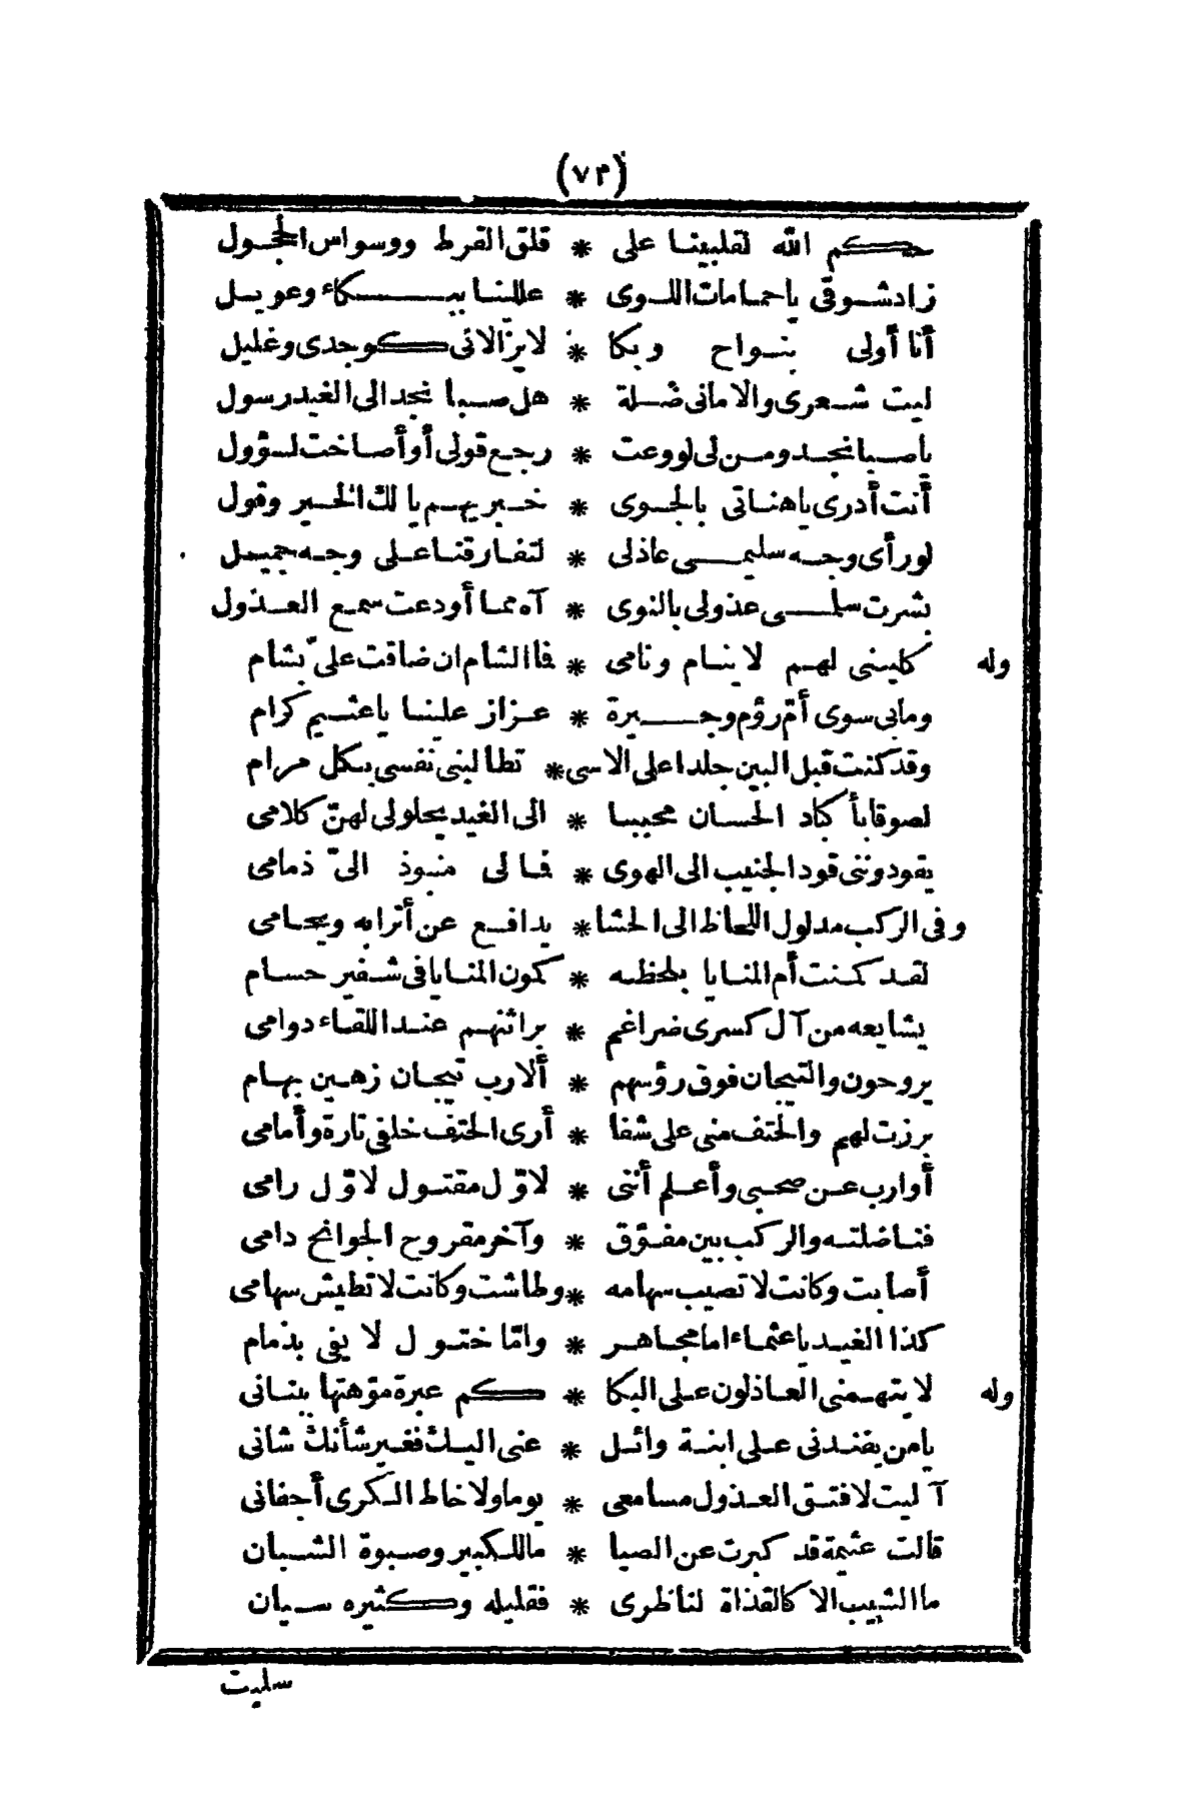 (٧٣)
حكم الله لقلبينا على * قلق القرط ووسواس الحجول
زاد شوقى ياحمامات اللوى * عللينا ببكاء وعويل
أنا أولى بنواح وبكا * لا يزالانى كوجدى وغليل
ليت شعرى والامانى ضلة * هل صبا نجد الى الغيد رسول
ياصبا نجد ومن لى لو وعت * رجع قولى أو أصاخت لسؤول
أنت أدرى ياهناتى بالجوى * خبريهم يا لك الخير وقول
لو رأى وجه سليمى عاذلى * لتفارقنا على وجه جميل
بشرت سلمى عذولى بالنوى * آه مما أودعت سمع العذول
وله كلينى لهم لا ينام ونامى * فما الشام ان ضاقت علىّ بشام
ومابى سوى أمّ رؤم وجيرة * عزاز علينا ياعثيم كرام
وقد كنت قبل البين جلدا على الاسى * تطالبنى نفسى بكل مرام
لصوقا بأكباد الحسان محببا * الى الغيد يحلو لى لهنّ كلامى
يقودوننى قود الجنيب الى الهوى * فالى منبوذ الىّ ذمامى
وفى الركب مدلول اللحاظ الى الحشا * يدافع عن أترابه ويحامى
لقد كمنت أم المنايا بلحظه * كمون المنايا فى شفير حسام
يشايعه من آل كسرى ضراغم * براثنهم عند اللقاء دوامى
يروحون والتيجان فوق رؤسهم * ألا رب تيجان زهين بهام
برزت لهم والحتف منى على شفا * أرى الحتف خلفى تارة وأمامى
أوارب عن صحبى وأعلم أننى * لاوّل مقتول لاوّل رامى
فناضلته والركب بين مفوّق * وآخر مقروح الجوانح دامى
أصابت وكانت لا تصيب سهامه * وطاشت وكانت لا تطيش سهامى
كذا الغيد ياعثماء اما مجاهر * وامّا ختول لا يفى بذمام
وله لا يتهمنى العاذلون على البكا * كم عبرة موّهتها ببنانى
يامن يفندنى على ابنة وائل * عنى اليك فغير شأنك شانى
آليت لا فتق العذول مسامعى * يوما ولا خاط الكرى أجفانى
قالت عثيمة قد كبرت عن الصبا * ما للكبير وصبوة الشبان
ما الشيب الا كالقذاة لناظرى * فقليله وكثيره سيان
سليت